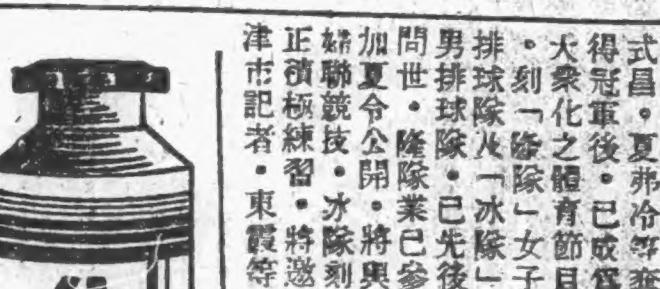 式昌。夏弗冷等奪
得冠軍後。已成爲
大衆化之體育節目
。刻「隆隊」女子
排球隊及「冰隊」
男排球隊。已先後
問世。隆隊業已參
加夏令公開。將與
婦聯競技。冰隊刻
正積極練習。將邀
津市記者。東霞等